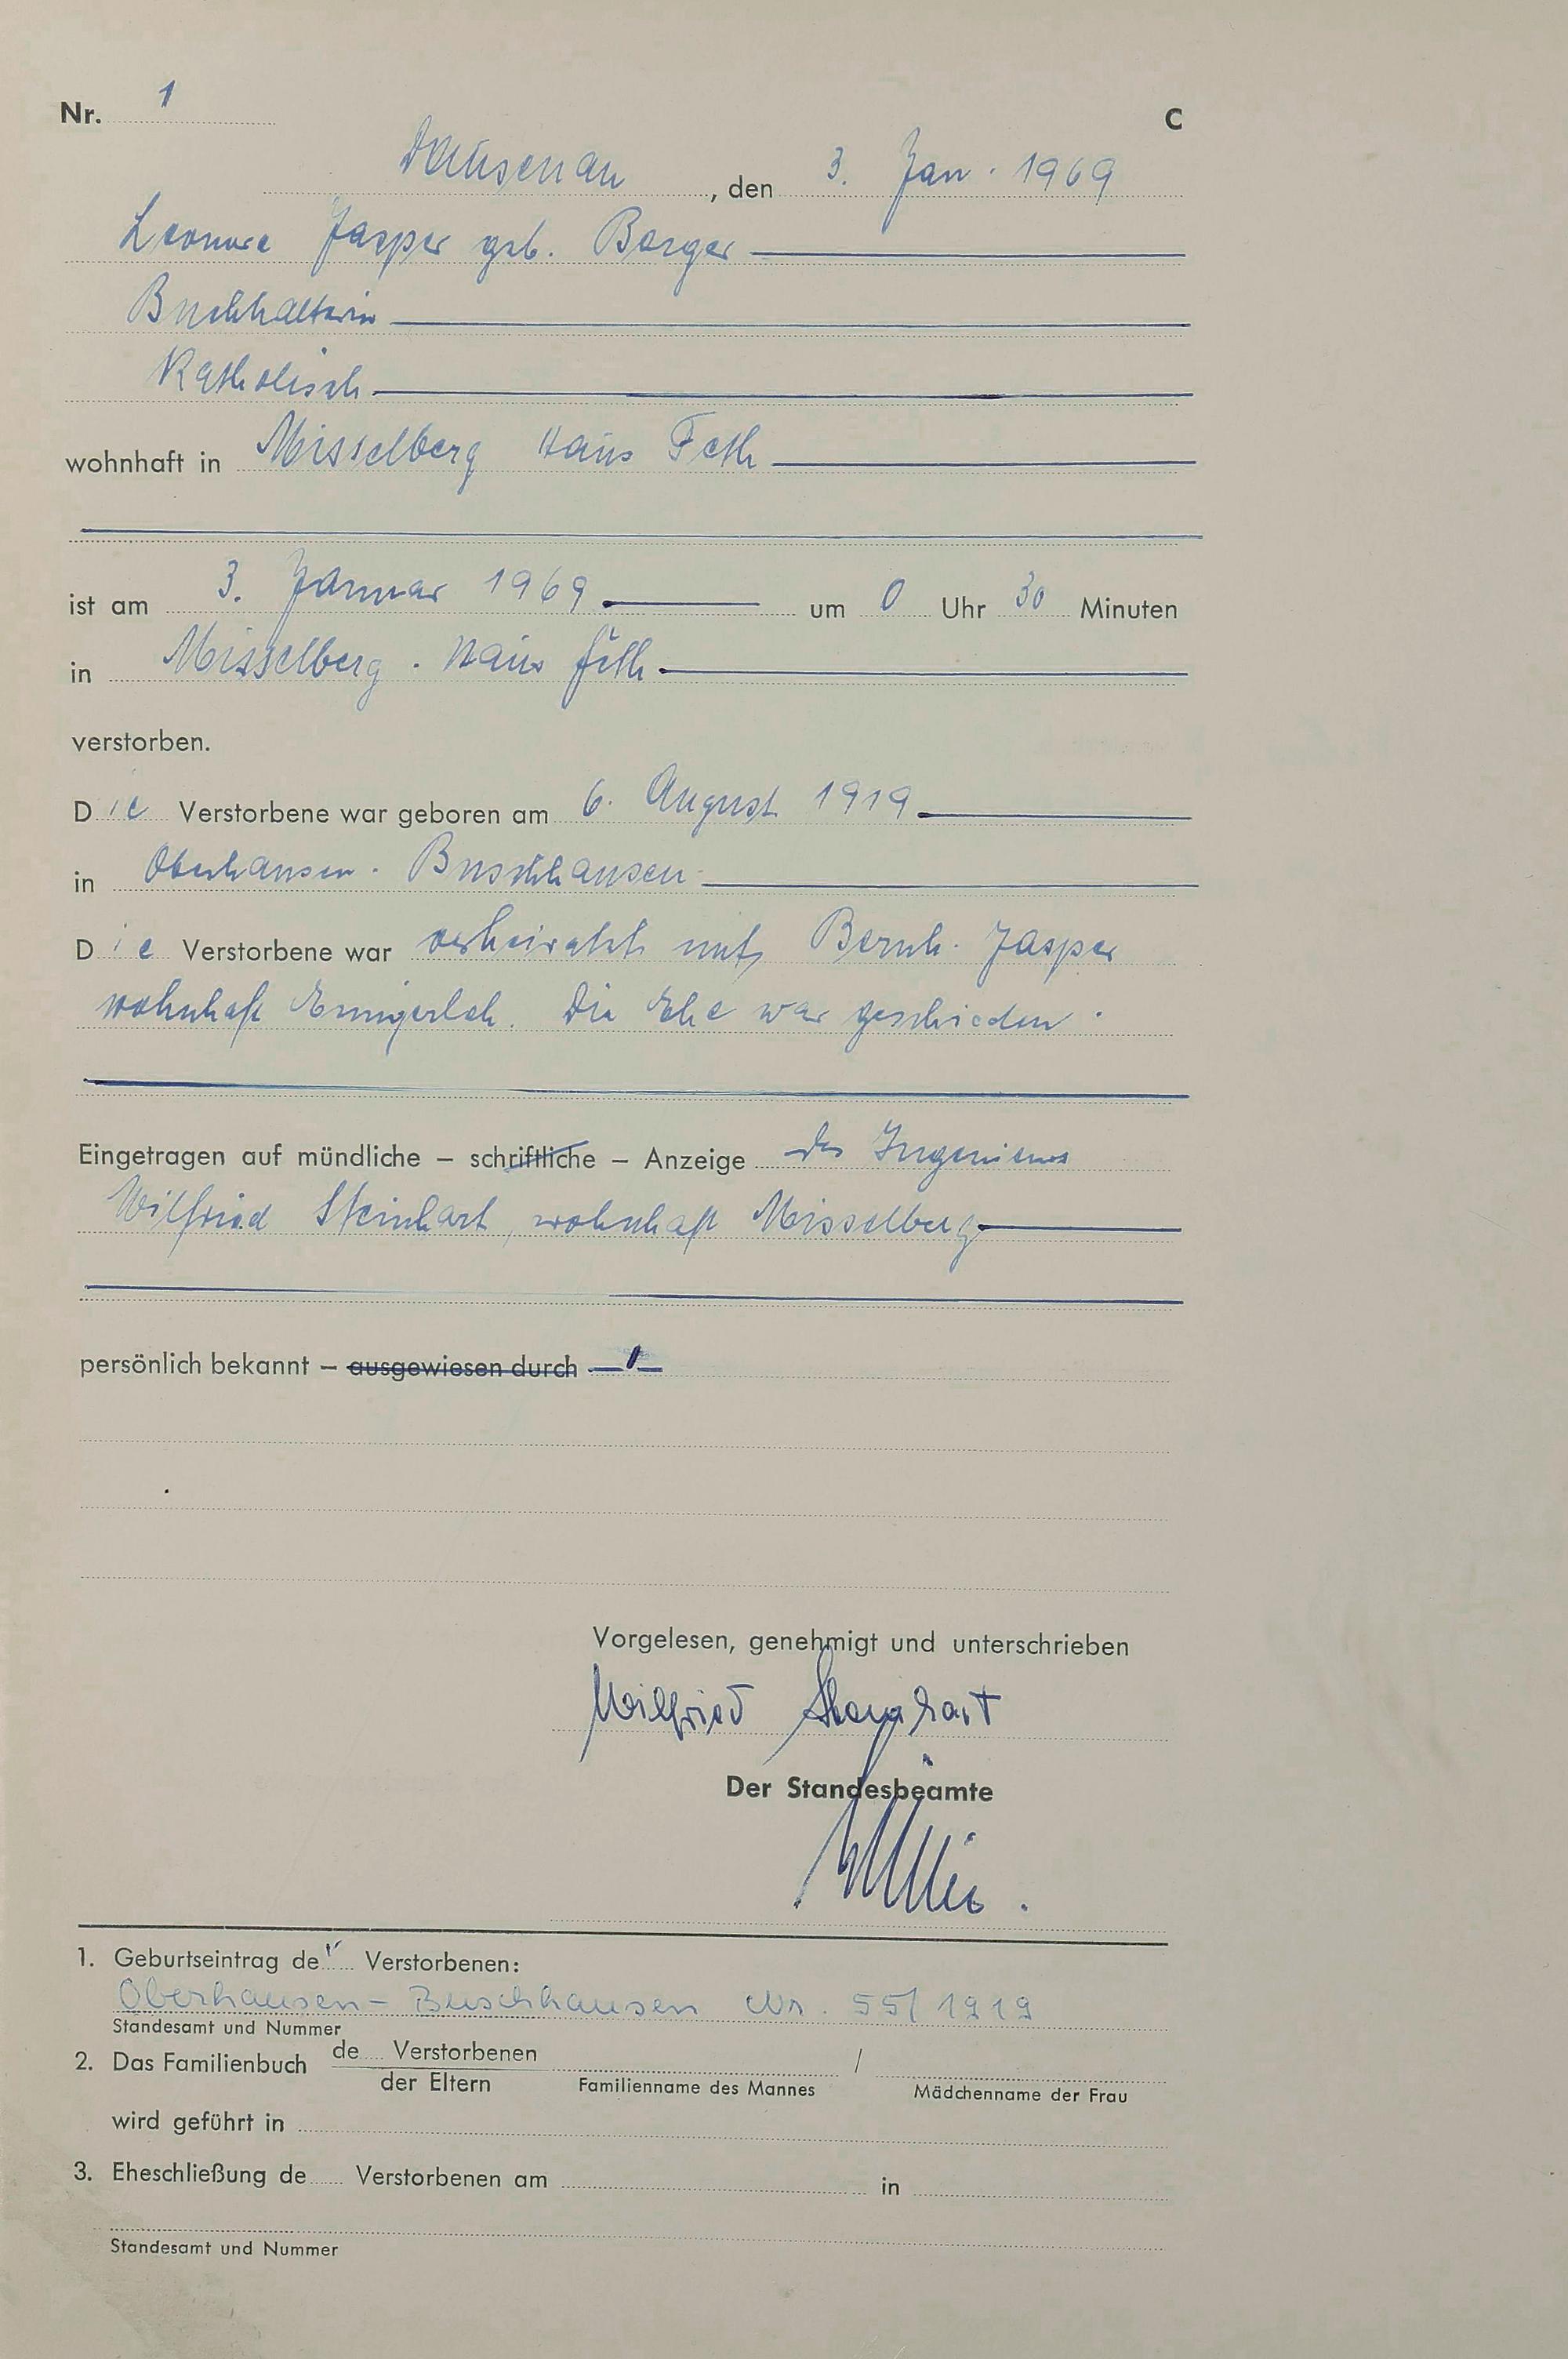 Nr. 1 C
Dausenau, den 3. Jan. 1969
Leonore Jasper geb. Borger
Buchhalterin
Katholisch
wohnhaft in Misselberg Haus Feth
ist am 3. Januar 1969 um 0 Uhr 30 Minuten
in Misselberg. Haus
verstorben.
Die Verstorbene war geboren am 6. August 1919
in Oberhausen. Buschhausen
Die Verstorbene war verheiratet mit Bernh. Jasper
wohnhaft Ennigerloh. Die Ehe war geschieden.
Eingetragen auf mündliche – schriftliche – Anzeige des Ingenieurs
Wilfried Steinhart, wohnhaft Misselberg
persönlich bekannt – ausgewiesen durch
Vorgelesen, genehmigt und unterschrieben
Wilfried
Der Standesbeamte
1. Geburtseintrag der Verstorbenen:
Oberhausen-Buschhausen Nr. 55/1919
Standesamt und Nummer
2. Das Familienbuch de Verstorbenen /
der Eltern Familienname des Mannes Mädchenname der Frau
wird geführt in
3. Eheschließung de Verstorbenen am in
Standesamt und Nummer